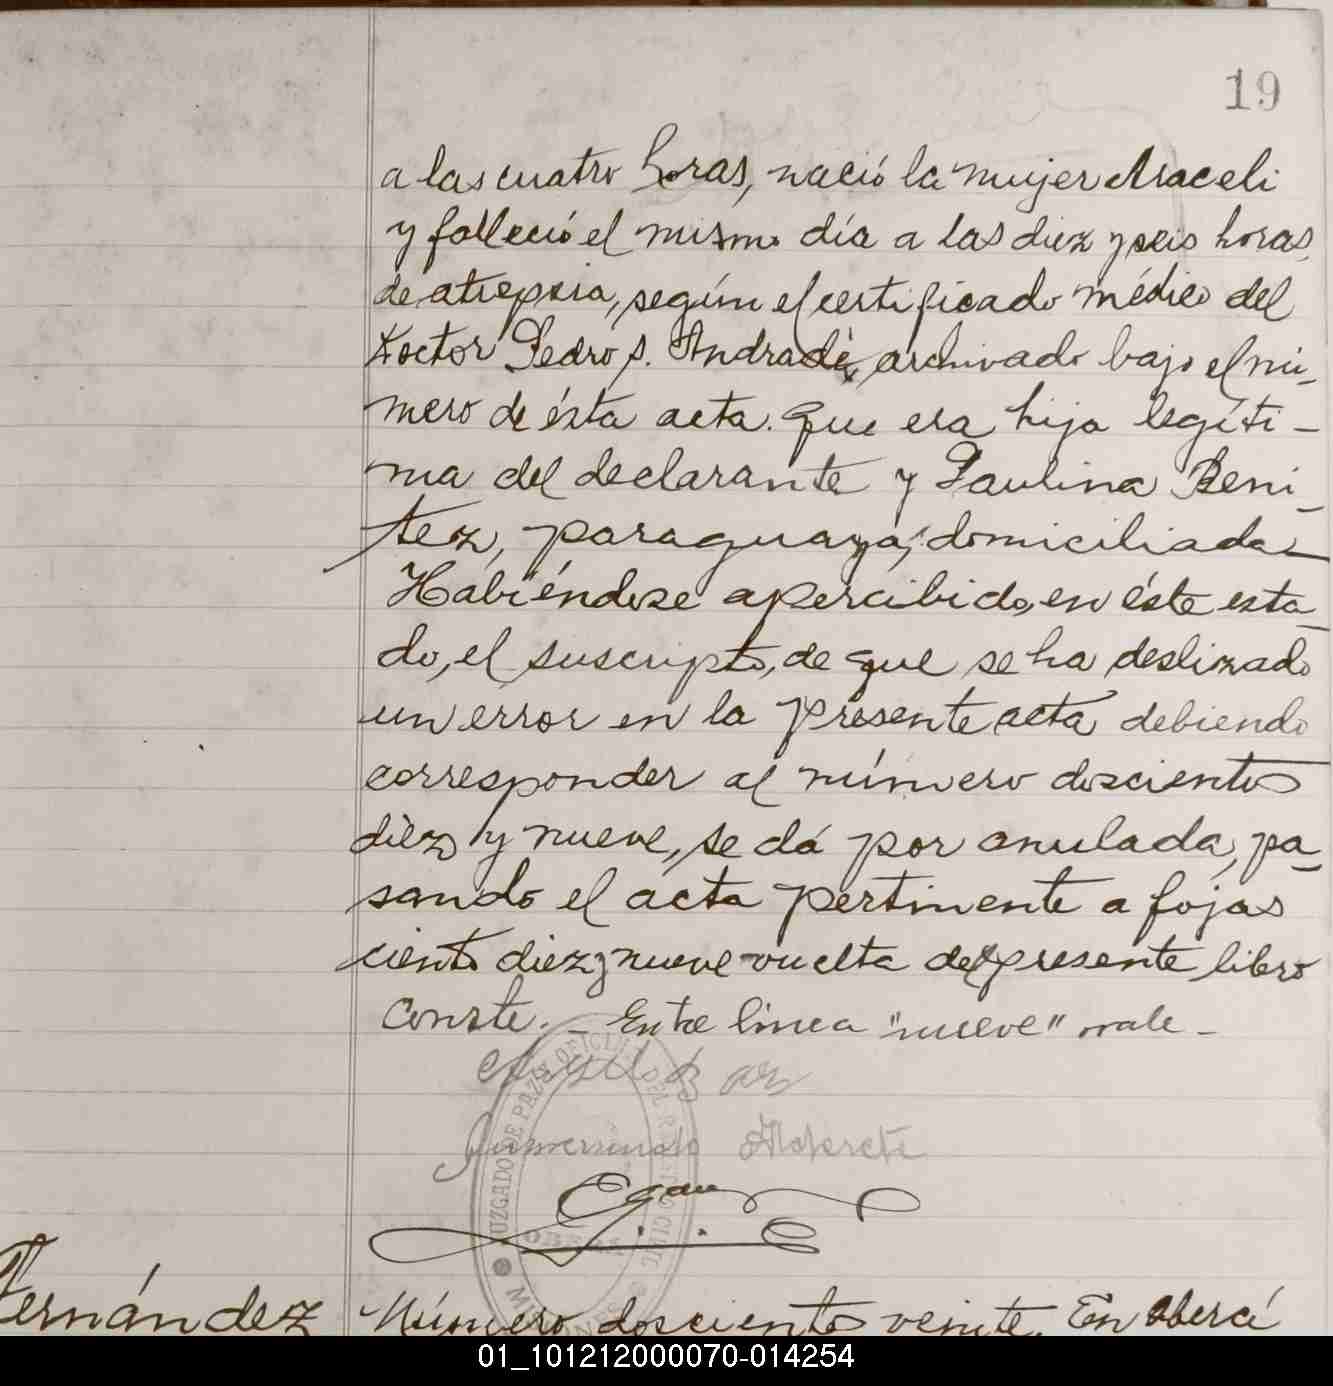 19
a las cuatro horas, nació la mujer Araceli
y falleció el mismo día a las diez y seis horas,
de atrepsia, según el certificado médico del
Doctor Pedro S. Andrade, archivado bajo el nú-
mero de ésta acta. Que era hija legíti-
ma del declarante y Paulina Beni-
tez, paraguaya, domiciliada
Habiéndose apercibido, en éste esta-
do, el suscripto, de que se ha deslizado
un error en la presente acta debiendo
corresponder al número doscientos
diez y nueve, se dá por anulada, pa-
sando el acta pertinente a fojas
ciento diez y nueve vuelta del presente libro
Conste. - Entre línea "nueve" vale -
JUZGADO DE PAZ Y OFICINA DEL REGISTRO CIVIL
OBERÁ
MISIONES
Fernández
Número doscientos veinte. En Oberá
01_101212000070-014254